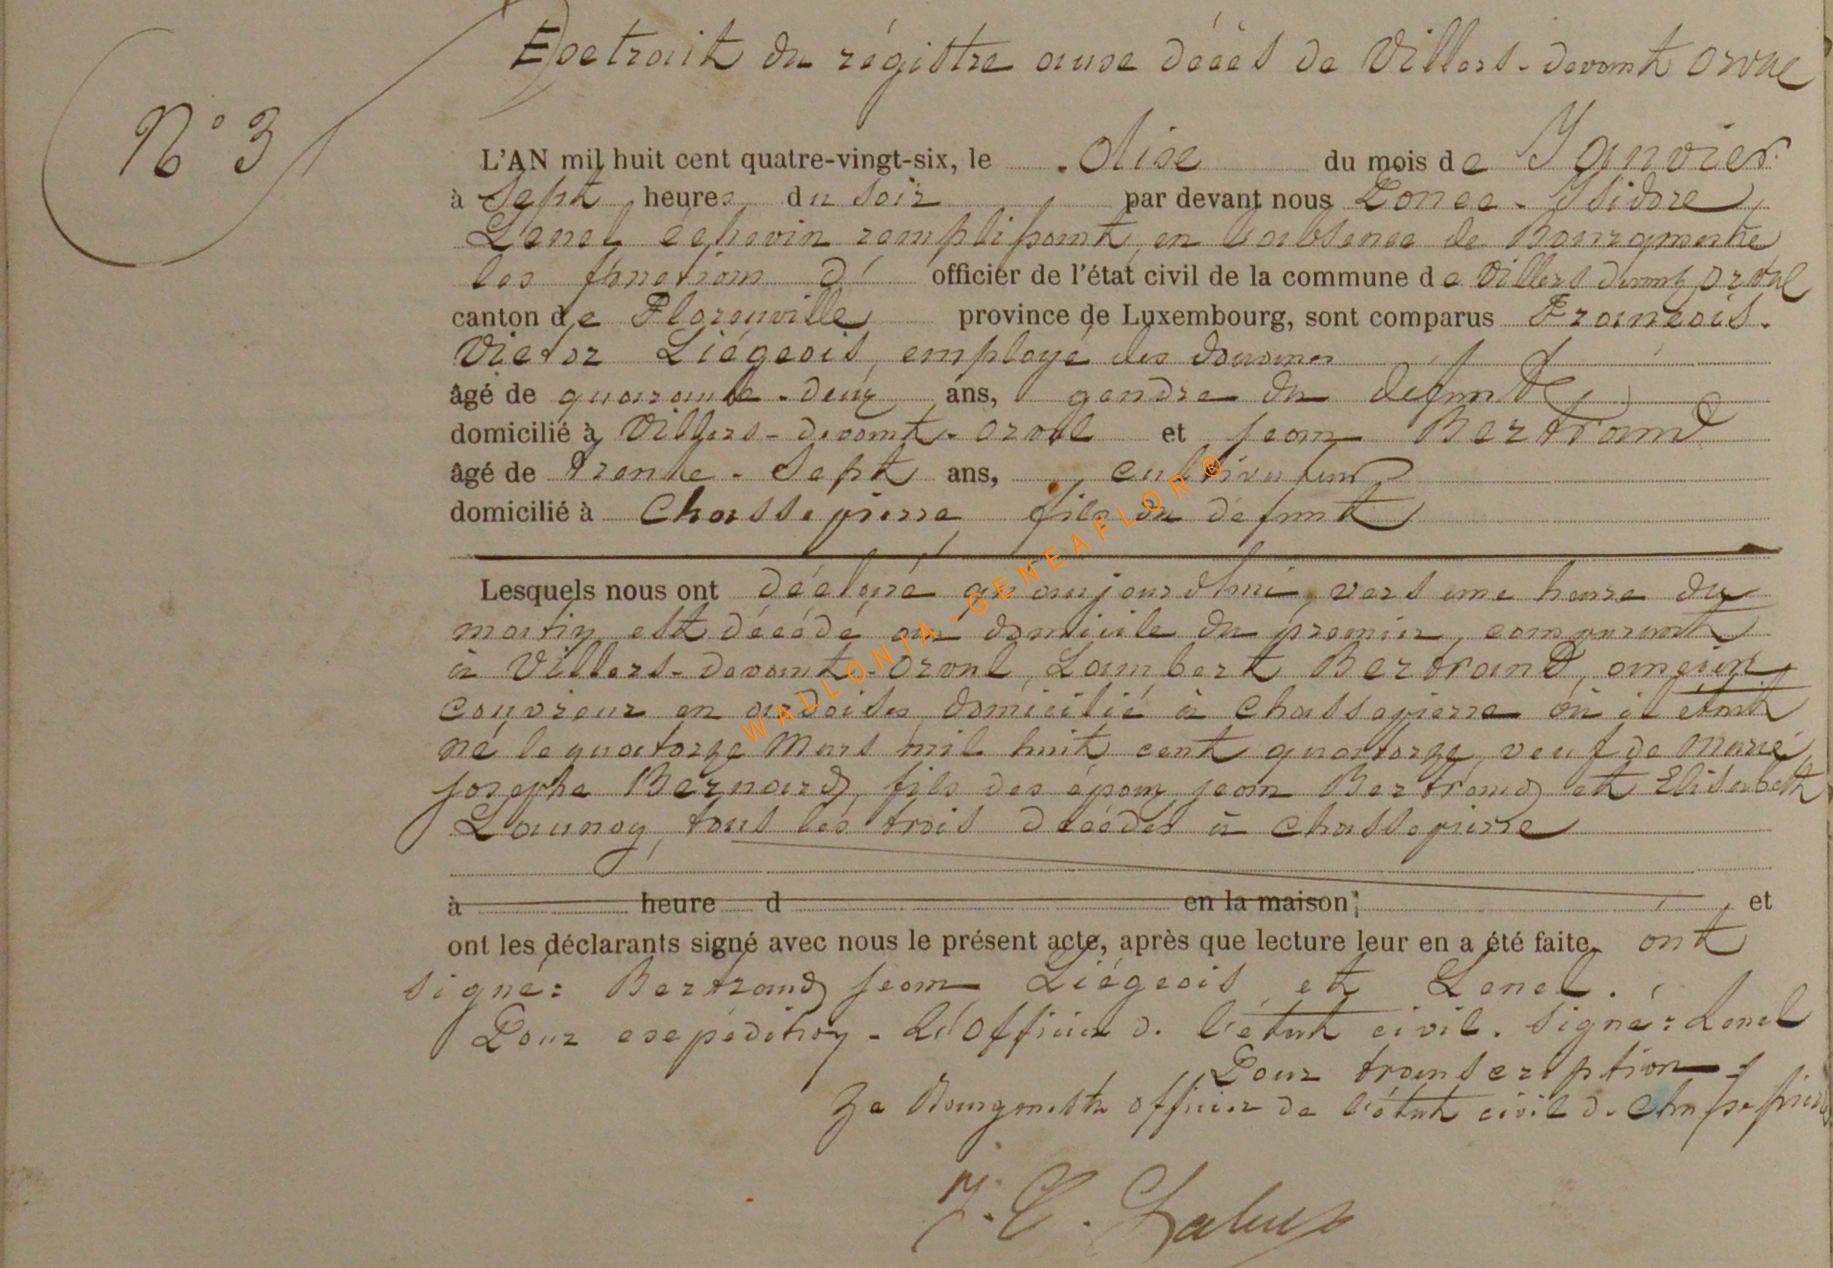 Extrait du régistre aux décès de Villers-devant orval
N° 3
L'AN mil huit cent quatre-vingt-six, le dix du mois de Janvier
à Sept heures du soir par devant nous Ponce-Isidore
Lenel échevin remplissant, en l'absence de Bourgmestre
les fonctions d' officier de l'état civil de la commune de Villers devant orval
canton de Florenville province de Luxembourg, sont comparus François-
Victor Liégeois, employé des douanes
âgé de quarante-deux ans, gendre du défunt,
domicilié à Villers-devant-orval et jean Bertrand
âgé de trente-sept ans, cultivateur
domicilié à Chassepierre, fils du défunt
Lesquels nous ont déclaré qu'aujourdhui, vers une heure du
matin, est décédé au domicile du premier comparant
à Villers-devant-orval, Lambert Bertrand, ancien
couvreur en ardoises domicilié à Chassepierre où il était
né le quatorze Mars mil huit cent quatorze, veuf de Marie
josephe Bernard, fils des époux jean Bertrand et Elisabeth
Launoy, tous les trois décédés à Chassepierre
à heure d en la maison; et
ont les déclarants signé avec nous le présent acte, après que lecture leur en a été faite. ont
signé: Bertrand jean Liégeois et Lenel.
Pour expédition - L'Officier de l'état civil. Signé: Lenel
Pour transcription -
Le Bourgmestre officier de l'état civil de Chassepierre
WALLONIA-GENEAFLOR®